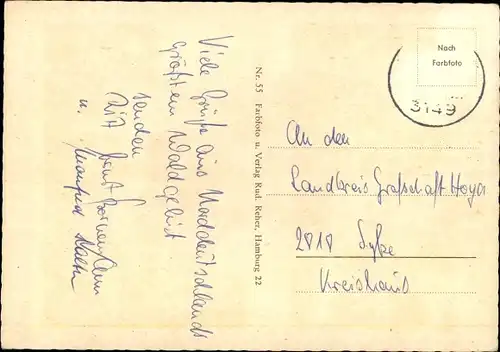 Viele Grüße aus Norddeutschlands
größtem Waldgebiet
senden
u. Manfred
Nr. 55 Farbfoto u. Verlag Rud. Reher, Hamburg 22
Nach
Farbfoto
3149
An den
Landkreis Grafschaft Hoya
2810 Syke
Kreishaus